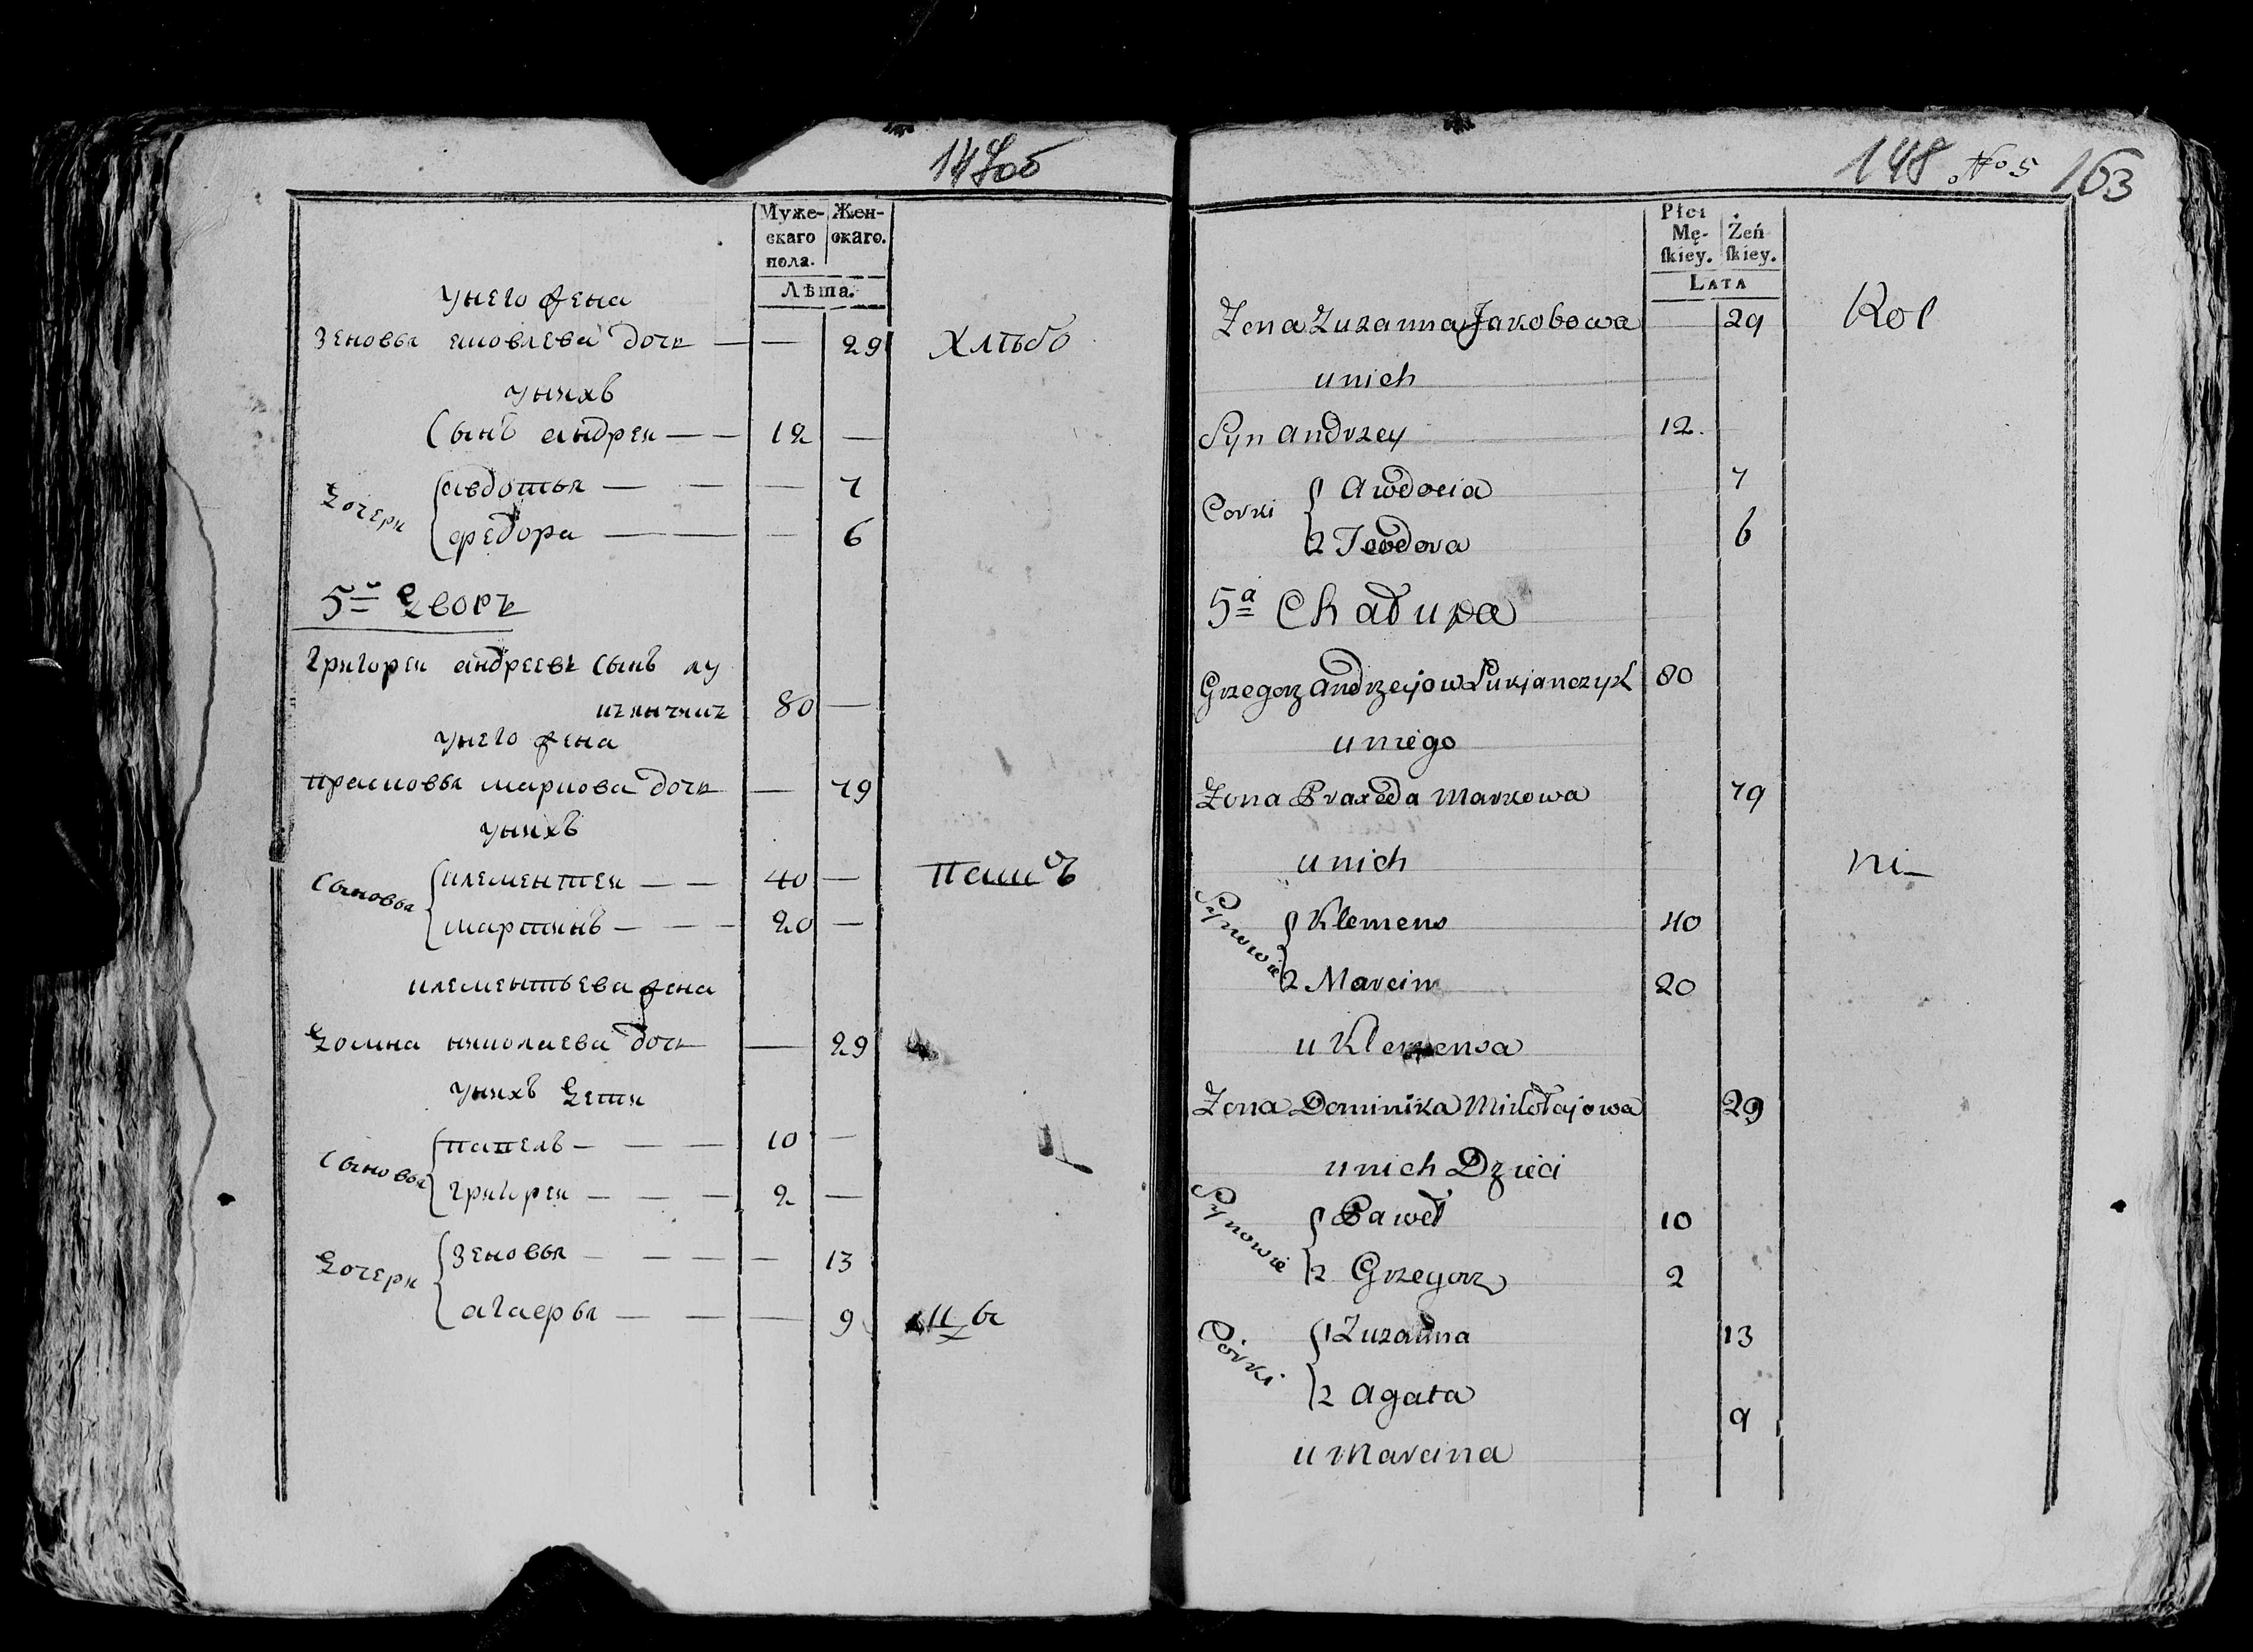 147об
Муже-
скаго
пола.
Жен-
скаго.
Лѣта.
унего жена
зеновья яковлева дочь — — 29 Хлѣбо
унихъ
Сынъ андреи — — 12 —
Дочери
авдотья — — — 7
федора — — — 6
5й Дворъ
григореи андреевъ сынъ лу
80 —
унего жена
прасковья маркова дочь — 79
унихъ
Сыновья
клементеи — — 40 — Паш
мартинъ — — — 20 —
клементьева жена
Домна николаева дочь — 29
унихъ Дети
Сыновья
павелъ — — — 10 —
григореи — — — 2 —
Дочери
зеновья — — — — 13
агаерья — — — 9
148 № 5 163
Płci
Mę-
skiey.
Żeń
skiey.
LATA
Zona Zuzanna Jakobowa 29 Rol
unich
Syn Andrzey 12.
Corki
Awdocia 7
2 Teodora 6
5a Chałupa
Grzegorz Andrzejow Lukjanczyk 80
uniego
Zona Praxeda Markowa 79
unich ni_
Synowie
Klemens 40
2 Marcin 20
u Klemensa
Zona Dominika Mikołajowa 29
unich Dzieci
Synowie
Paweł 10
2 Grzegorz 2
Córki
1 Zuzanna 13
2 Agata 9
u Marcina